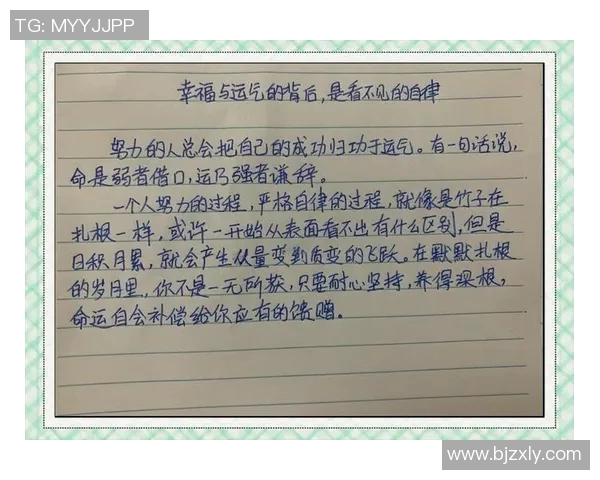 TG: MYYJJPP
幸福与运气的背后,是看不见的自律
努力的人总会把自己的成功归功于运气。有一句话说,
命是弱者借口,运乃强者谦辞。
一个人努力的过程,严格自律的过程,就像是竹子在
扎根一样,或许一开始从表面看不出有什么区别,但是
日积月累,就会产生从量变到质变的飞跃。在默默扎根
的岁月里,你不是一无所获,只要耐心坚持,养得深根,
命运自会补偿给你应有的馈赠。
www.bjzxly.com